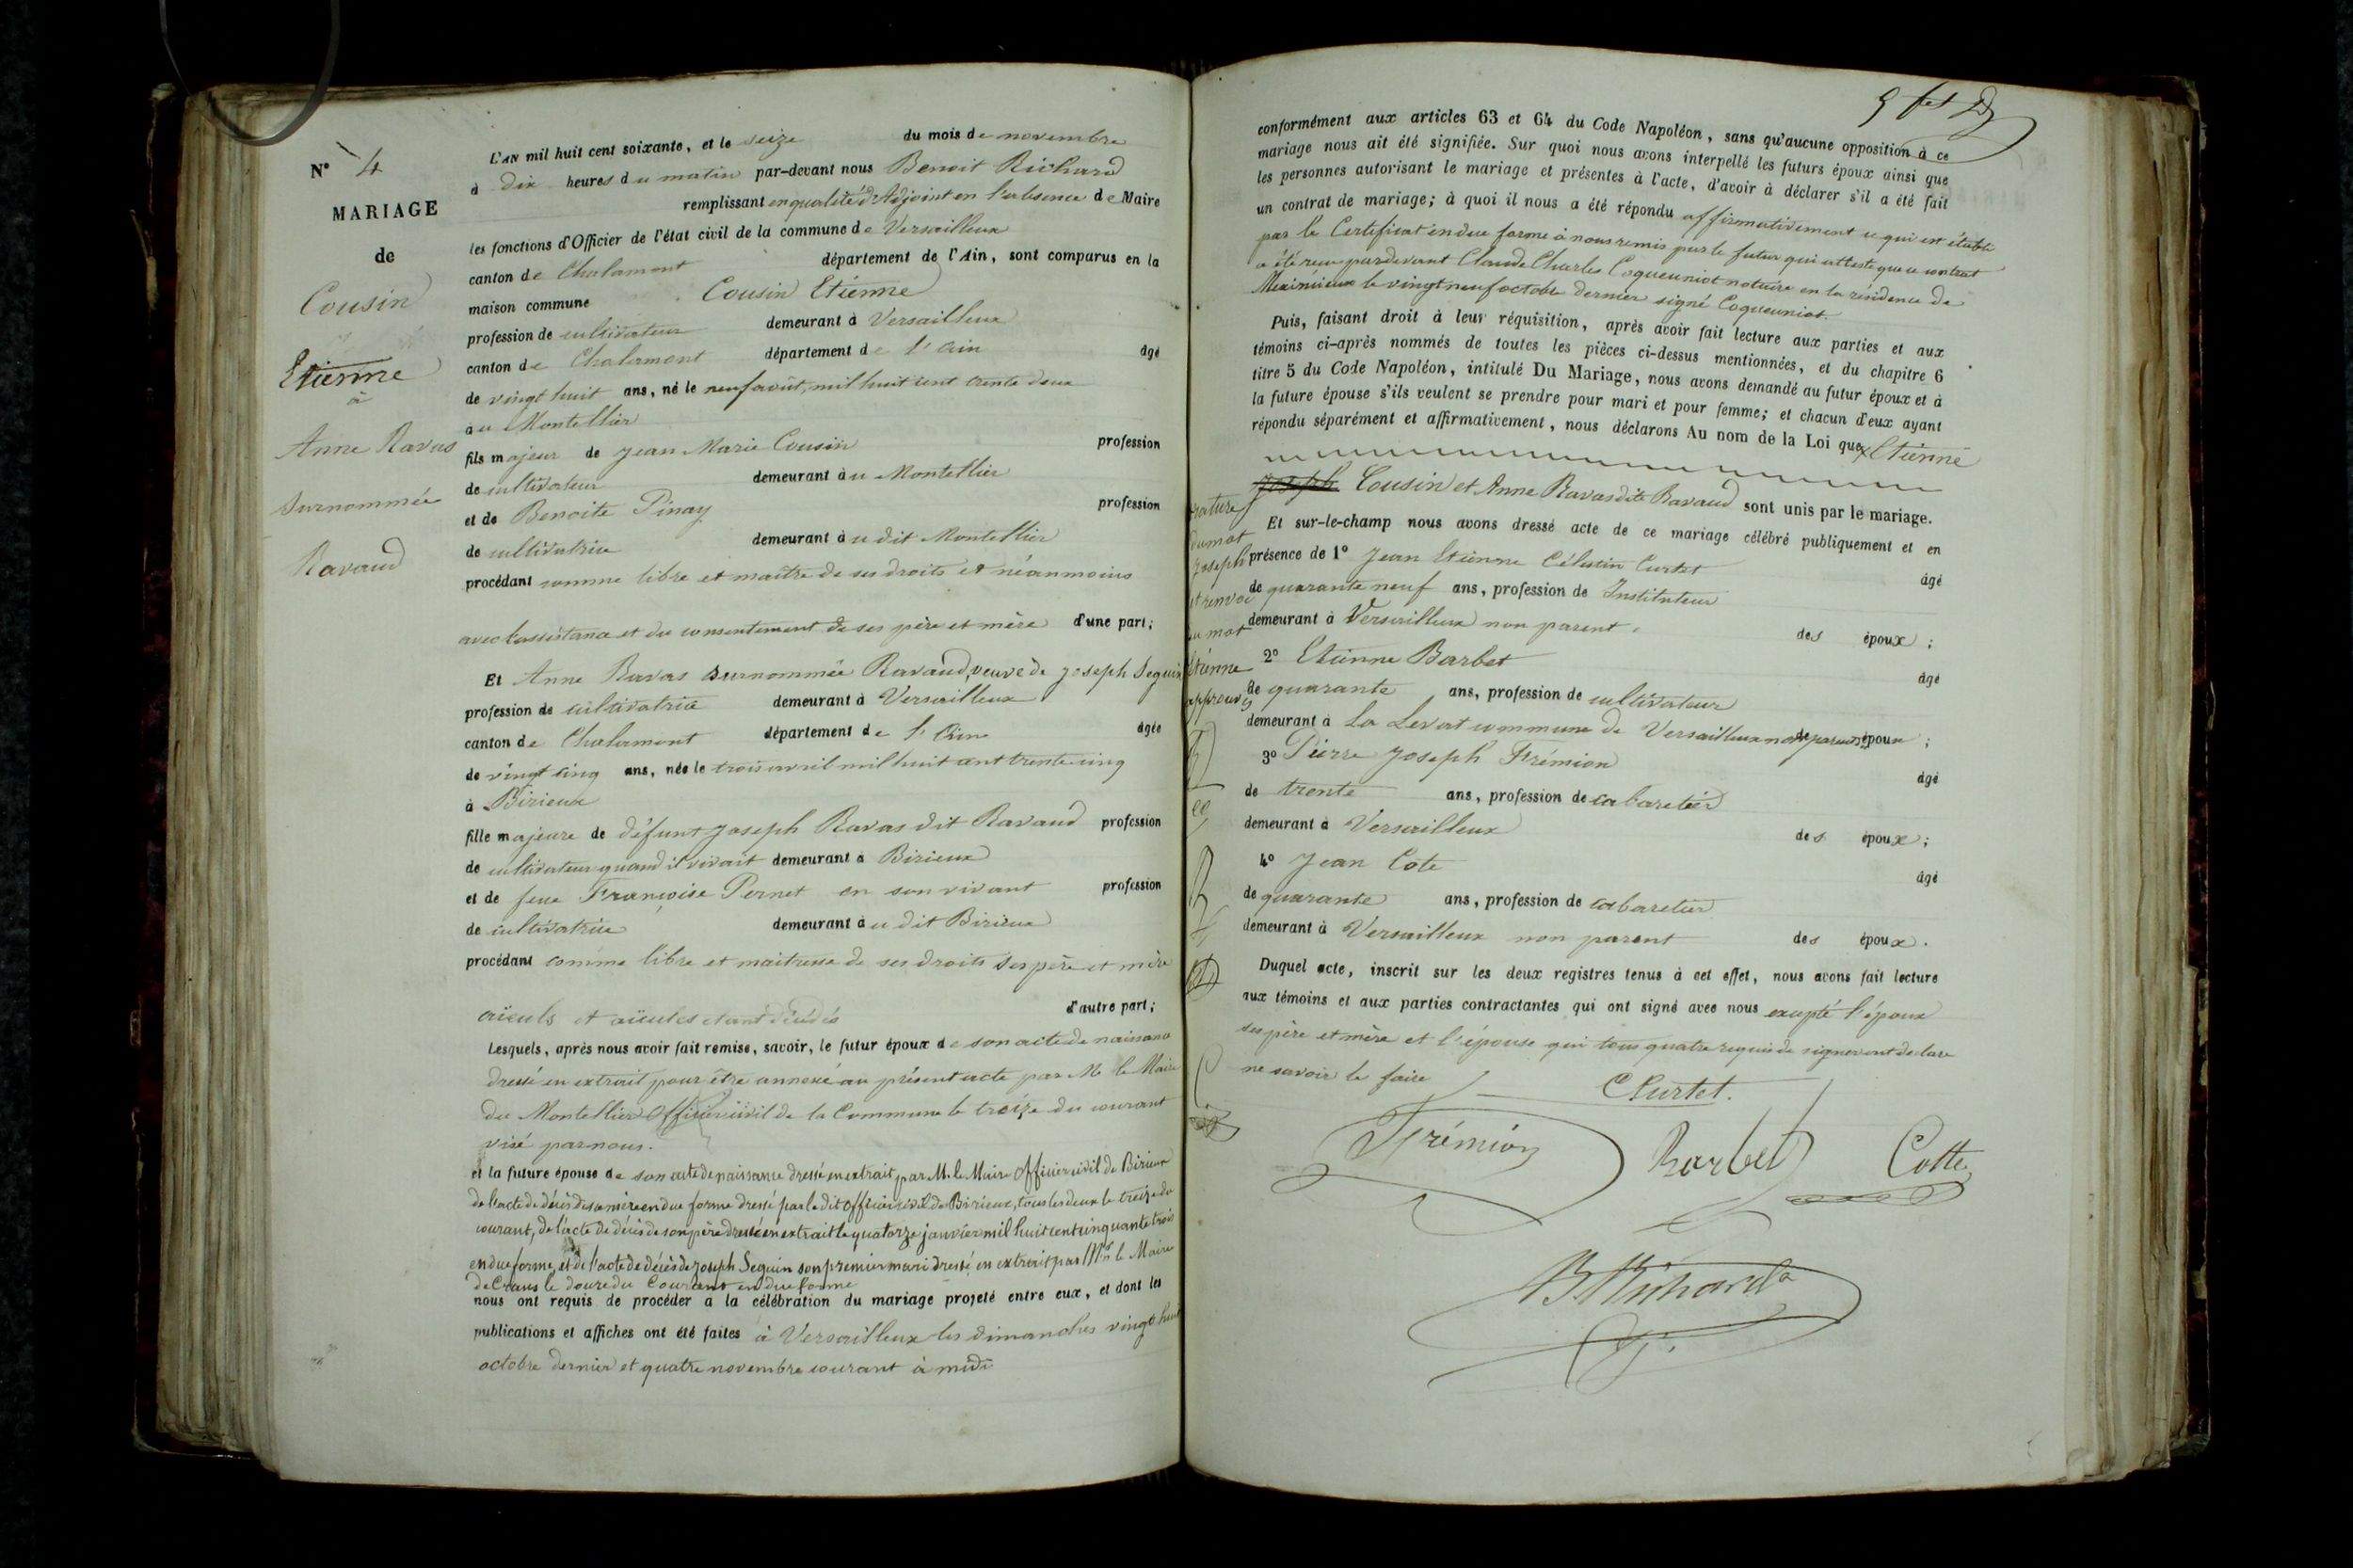 N° 4
MARIAGE
de
Cousin
Etienne
à
Anne Ravas
Surnommée
Ravaud
L'AN mil huit cent soixante, et le seize du mois de novembre
à dix heures du matin par-devant nous Benoit Richard
remplissant en qualité d'Adjoint en l'absence de Maire
les fonctions d'Officier de l'état civil de la commune de Versailleux
canton de Chalamont département de l'Ain, sont comparus en la
maison commune Cousin Etienne
profession de cultivateur demeurant à Versailleux
canton de Chalamont département de l'Ain âgé
de vingt huit ans, né le neuf août, mil huit cent trente deux
au Montellier
fils majeur de Jean Marie Cousin profession
de cultivateur demeurant au Montellier
et de Benoite Pinay profession
de cultivatrice demeurant au dit Montellier
procédant comme libre et maître de ses droits et néanmoins
avec l'assistance et du consentement de ses père et mère d'une part;
Et Anne Ravas surnommée Ravaud, veuve de Joseph Seguin
profession de cultivatrice demeurant à Versailleux
canton de Chalamont département de l'Ain âgée
de vingt cinq ans, née le trois avril mil huit cent trente cinq
à Birieux
fille majeure de défunt Joseph Ravas dit Ravaud profession
de cultivateur quand il vivait demeurant à Birieux
et de feue Françoise Pernet en son vivant profession
de cultivatrice demeurant au dit Birieux
procédant comme libre et maitresse de ses droits ses père et mère
aïeuls et aïeules étant décédés d'autre part;
Lesquels, après nous avoir fait remise, savoir, le futur époux de son acte de naissance
dressé en extrait pour être annexé au présent acte par M. le Maire
du Montellier Officier civil de la Commune le treize du courant
visé par nous.
et la future épouse de son acte de naissance dressé en extrait par M. le Maire Officier civil de Birieux
de l'acte de décès de sa mère en due forme dressé par le dit Officier civil de Birieux, tous les deux le treize du
courant, de l'acte de décès de son père dressé en extrait le quatorze janvier mil huit cent cinquante trois
en due forme, et de l'acte de décès de Joseph Seguin son premier mari dressé en extrait par Mr le Maire
de Crans le douze du Courant en due forme
nous ont requis de procéder à la célébration du mariage projeté entre eux, et dont les
publications et affiches ont été faites à Versailleux les dimanches vingt huit
octobre dernier et quatre novembre courant à midi
conformément aux articles 63 et 64 du Code Napoléon, sans qu'aucune opposition à ce
mariage nous ait été signifiée. Sur quoi nous avons interpellé les futurs époux ainsi que
les personnes autorisant le mariage et présentes à l'acte, d'avoir à déclarer s'il a été fait
un contrat de mariage; à quoi il nous a été répondu affirmativement ce qui est établi
par le Certificat en due forme à nous remis par le futur qui atteste que ce contrat
a été reçu pardevant Claude Charles Coqueuniot notaire en la résidence de
Meximieux le vingt neuf octobre dernier signé Coqueuniot.
Puis, faisant droit à leur réquisition, après avoir fait lecture aux parties et aux
témoins ci-après nommés de toutes les pièces ci-dessus mentionnées, et du chapitre 6
titre 5 du Code Napoléon, intitulé Du Mariage, nous avons demandé au futur époux et à
la future épouse s'ils veulent se prendre pour mari et pour femme; et chacun d'eux ayant
répondu séparément et affirmativement, nous déclarons Au nom de la Loi que x Etienne
Joseph Cousin et Anne Ravas dite Ravaud sont unis par le mariage.
Et sur-le-champ nous avons dressé acte de ce mariage célébré publiquement et en
présence de 1° Jean Etienne Célestin Curtet âgé
de quarante neuf ans, profession de Instituteur
demeurant à Versailleux non parent des époux;
2° Etienne Barbet âgé
de quarante ans, profession de cultivateur
demeurant à La Levat commune de Versailleux non parent des époux;
3° Pierre Joseph Frémion âgé
de trente ans, profession de cabaretier
demeurant à Versailleux des époux;
4° Jean Cote âgé
de quarante ans, profession de cabaretier
demeurant à Versailleux non parent des époux.
Duquel acte, inscrit sur les deux registres tenus à cet effet, nous avons fait lecture
aux témoins et aux parties contractantes qui ont signé avec nous excepté l'époux
ses père et mère et l'épouse qui tous quatre requis de signer ont déclaré
ne savoir le faire
rature
du mot
Joseph
et renvoi
au mot
Etienne
approuvés
C Curtet.
Frémion
Barbet
Cotte
B. Richard